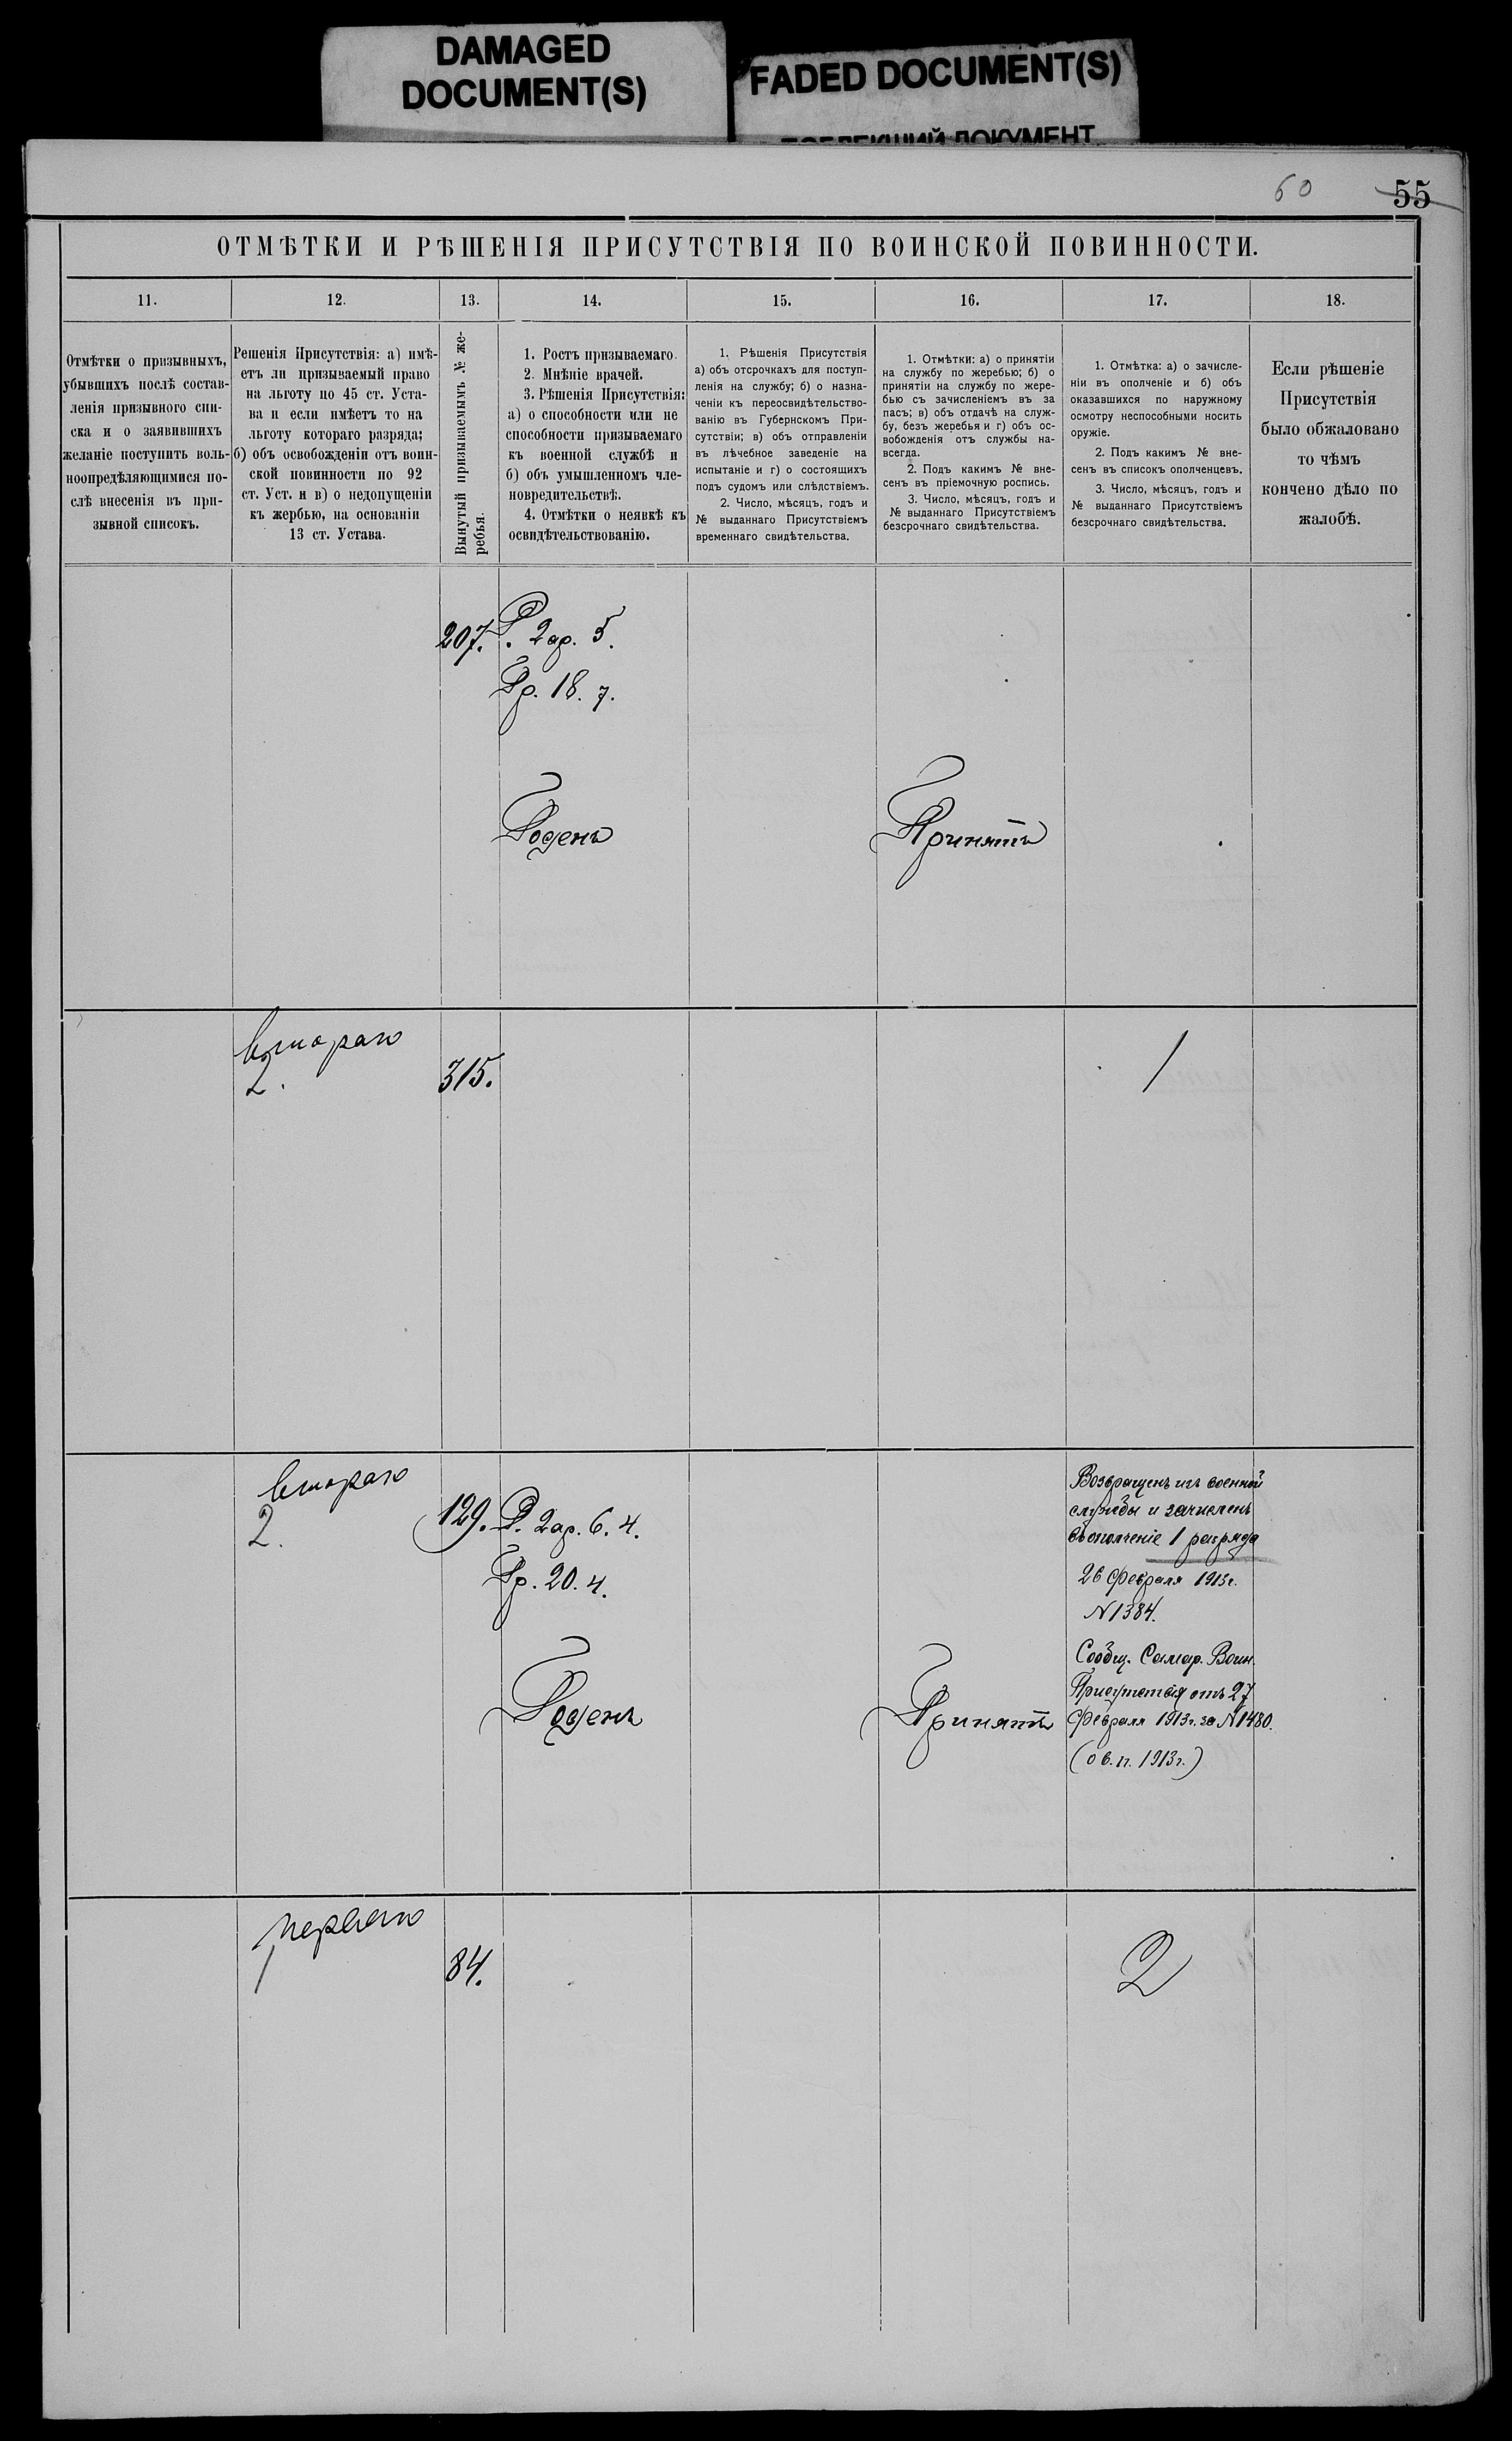 DAMAGED
DOCUMENT(S)
FADED DOCUMENT(S)
60 55
ОТМѢТКИ И РѢШЕНІЯ ПРИСУТСТВІЯ ПО ВОИНСКОЙ ПОВИННОСТИ.
11.
12.
13.
14.
15.
16.
17.
18.
Отмѣтки о призывныхъ,
убывшихъ послѣ состав-
ленія призывного спи-
ска и о заявившихъ
желаніе поступить воль-
ноопредѣляющимися по-
слѣ внесенія въ при-
зывной списокъ.
Решенія Присутствія: а) имѣ-
етъ ли призываемый право
на льготу по 45 ст. Уста-
ва и если имѣетъ то на
льготу котораго разряда;
б) объ освобожденіи отъ воин-
ской повинности по 92
ст. Уст. и в) о недопущеніи
къ жербью, на основаніи
13 ст. Устава.
Вынутый призываемымъ № же-
ребья.
1. Ростъ призываемаго.
2. Мнѣніе врачей.
3. Рѣшенія Присутствія:
а) о способности или не
способности призываемаго
къ военной службѣ и
б) объ умышленномъ чле-
новредительствѣ.
4. Отмѣтки о неявкѣ къ
освидѣтельствованію.
1. Рѣшенія Присутствія
а) объ отсрочкахъ для поступ-
ленія на службу; б) о назна-
ченіи къ переосвидѣтельство-
ванію въ Губернскомъ При-
сутствіи; в) объ отправленіи
въ лѣчебное заведеніе на
испытаніе и г) о состоящихъ
подъ судомъ или слѣдствіемъ.
2. Число, мѣсяцъ, годъ и
№ выданнаго Присутствіемъ
временнаго свидѣтельства.
1. Отмѣтки: а) о принятіи
на службу по жеребью; б) о
принятіи на службу по жере-
бью съ зачисленіемъ въ за
пасъ; в) объ отдачѣ на служ-
бу, безъ жеребья и г) объ ос-
вобожденія отъ службы на-
всегда.
2. Подъ какимъ № вне-
сенъ въ пріемочную роспись.
3. Число, мѣсяцъ, годъ и
№ выданнаго Присутствіемъ
безсрочнаго свидѣтельства.
1. Отмѣтка: а) о зачисле-
ніи въ ополченіе и б) объ
оказавшихся по наружному
осмотру неспособными носить
оружіе.
2. Подъ какимъ № вне-
сенъ въ списокъ ополченцевъ.
3. Число, мѣсяцъ, годъ и
№ выданнаго Присутствіемъ
безсрочнаго свидѣтельства.
Если рѣшеніе
Присутствія
было обжаловано
то чѣмъ
кончено дѣло по
жалобѣ.
207. Р. 2 ар. 5.
Гр. 18. 7.
Годенъ
Принятъ
второго
2.
315.
1
второго
2.
129. Р. 2 ар. 6. 4.
Гр. 20. 4.
Годенъ
Принятъ
Возвращенъ изъ военной
службы и зачисленъ
въ ополченіе 1 разряда
26 Февраля 1913 г.
N 1384.
Сообщ. Самар. Воин.
Присутствія отъ 27
Февраля 1913 г. за N 1480.
(о в. п. 1913 г.)
перваго
1
84.
2